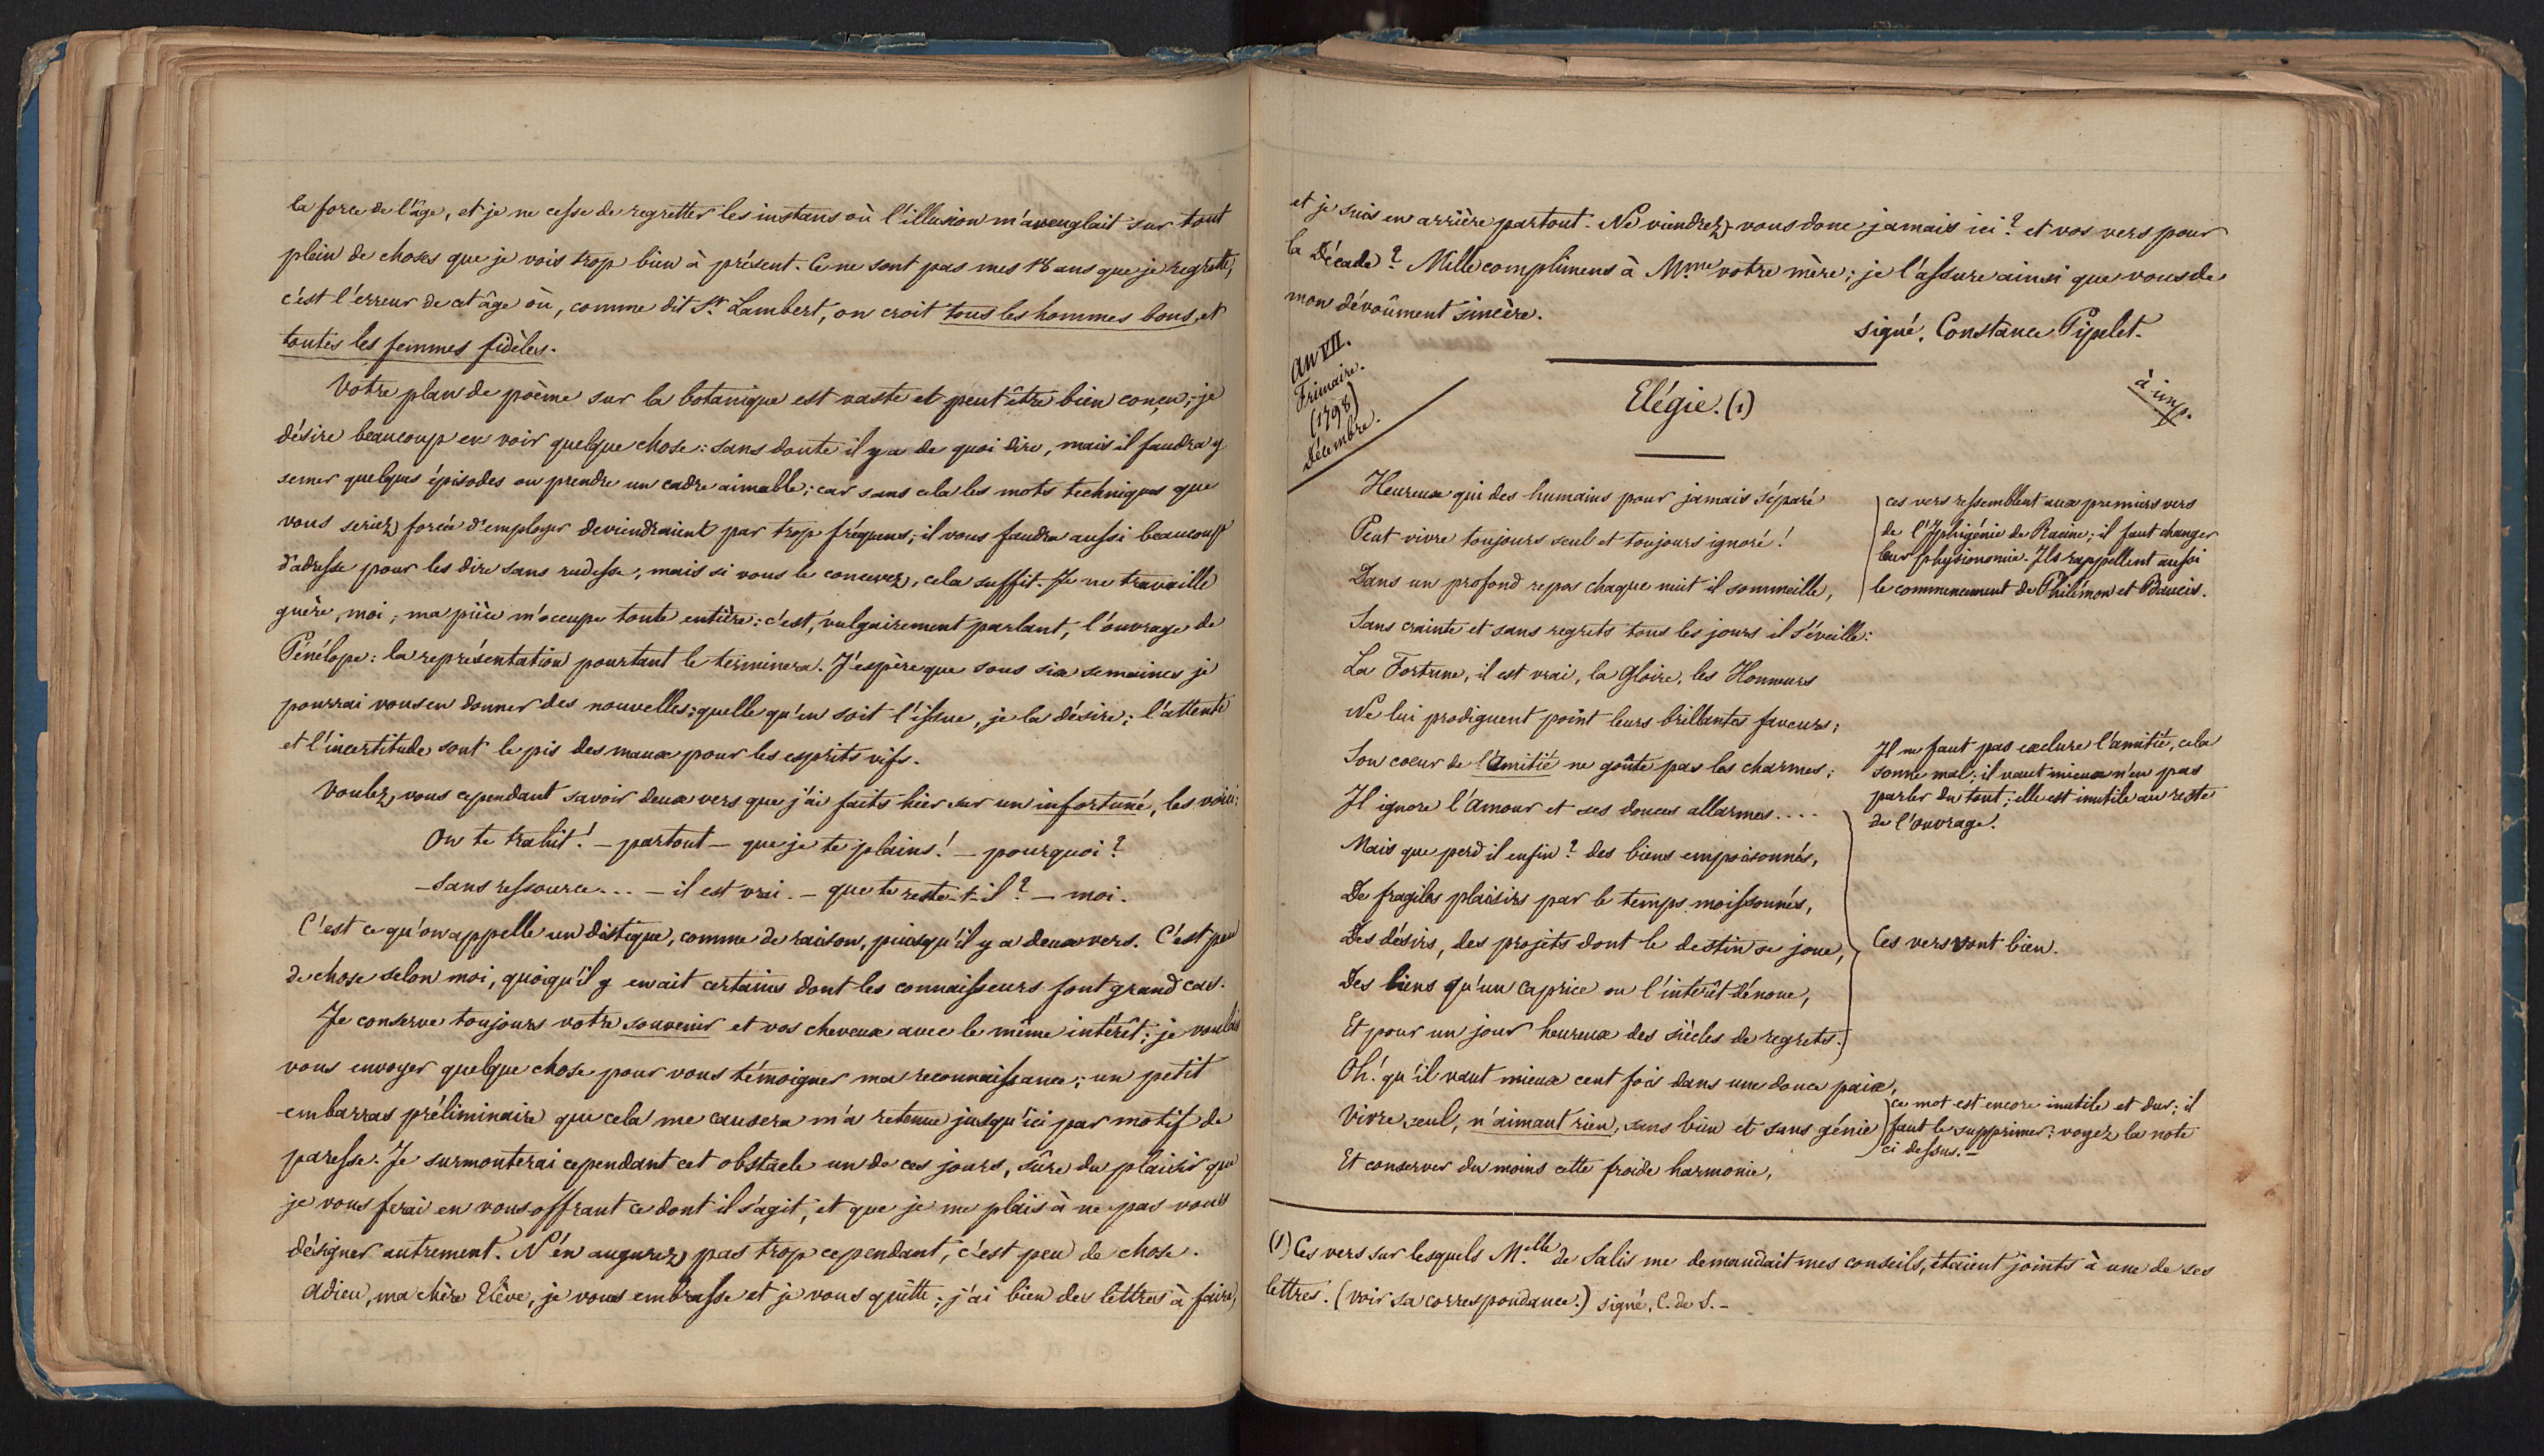 la force de l'âge, et je ne cesse de regretter les instans où l'illusion m'aveuglait sur tout
plein de choses que je vois trop bien à présent. Ce ne sont pas mes 18 ans que je regrette,
c'est l'erreur de cet âge où, comme dit St. Lambert, on croit tous les hommes bons, et
toutes les femmes fidèles.
Votre plan de poème sur la botanique est vaste et peut être bien conçu; je
désire beaucoup en voir quelque chose: sans doute il y a de quoi dire, mais il faudra y
semer quelques épisodes ou prendre un cadre aimable; car sans cela les mots techniques que
vous seriez forcée d'employer deviendraient par trop fréquens; il vous faudra aussi beaucoup
d'adresse pour les dire sans rudesse; mais si vous le concevez, cela suffit. Je ne travaille
guère, moi; ma pièce m'occupe toute entière: c'est, vulgairement parlant, l'ouvrage de
Pénélope: la représentation pourtant le terminera. J'espère que sous six semaines je
pourrai vous en donner des nouvelles; quelle qu'en soit l'issue, je la désire; l'attente
et l'incertitude sont le pis des maux pour les esprits vifs.
Voulez, vous cependant savoir deux vers que j'ai faits hier sur un infortuné, les voici:
On te trahit! — partout — que je te plains! — pourquoi?
— Sans ressource... — il est vrai. — que te reste-t-il? — moi.
C'est ce qu'on appelle un distique, comme de raison, puisqu'il y a deux vers. C'est peu
de chose selon moi, quoiqu'il y en ait certains dont les connaisseurs font grand cas.
Je conserve toujours votre souvenir et vos cheveux avec le même intérêt; je voulais
vous envoyer quelque chose pour vous témoigner ma reconnaissance; un petit
embarras préliminaire que cela me causera m'a retenue jusqu'ici par motif de
paresse. Je surmonterai cependant cet obstacle un de ces jours, sûre du plaisir que
je vous ferai en vous offrant ce dont il s'agit, et que je me plais à ne pas vous
désigner autrement. N'en augurez pas trop cependant, c'est peu de chose.
Adieu, ma chère Elève, je vous embrasse et je vous quitte; j'ai bien des lettres à faire,
et je suis en arrière partout. Ne viendrez-vous donc jamais ici? et vos vers pour
la Décade? Mille complimens à Mme votre mère; je l'assure ainsi que vous de
mon dévoûment sincère.
signé, Constance Pipelet.
an VII.
Frimaire.
(1798)
Décembre.
à imp.
Elégie. (1)
Heureux qui des humains pour jamais séparé
Peut vivre toujours seul et toujours ignoré!
Dans un profond repos chaque nuit il sommeille,
Sans crainte et sans regrets tous les jours il s'éveille:
ces vers ressemblent aux premiers vers
de l'Iphigénie de Racine; il faut changer
leur physionomie. Ils rappellent aussi
le commencement de Philémon et Baucis.
La Fortune, il est vrai, la Gloire, les Honneurs
Ne lui prodiguent point leurs brillantes faveurs;
Son coeur de l'Amitié ne goûte pas les charmes;
Il ignore l'Amour et ses douces allarmes....
Il ne faut pas exclure l'amitié, cela
sonne mal; il vaut mieux n'en pas
parler du tout; elle est inutile au reste
de l'ouvrage.
Mais que perd il enfin? des biens empoisonnés,
De fragiles plaisirs par le temps moissonnés,
Des désirs, des projets dont le destin se joue,
Des liens qu'un caprice ou l'intérêt dénoue,
Et pour un jour heureux des siècles de regrets.
Ces vers vont bien.
Oh! qu'il vaut mieux cent fois dans une douce paix,
Vivre seul, n'aimant rien, sans bien et sans génie
Et conserver du moins cette froide harmonie,
ce mot est encore inutile et dur; il
faut le supprimer: voyez la note
ci dessus.—
(1) Ces vers sur lesquels Melle de Salis me demandait mes conseils, étaient joints à une de ses
lettres. (voir sa correspondance.) signé, C. de S.—